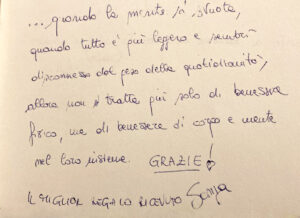 ... quando la mente si svuota,
quando tutto è più leggero e sembri
disconnesso dal peso della quotidianità,
allora non si tratta più solo di benessere
fisico, ma di benessere di corpo e mente
nel loro insieme. GRAZIE!
IL MIGLIOR REGALO RICEVUTO